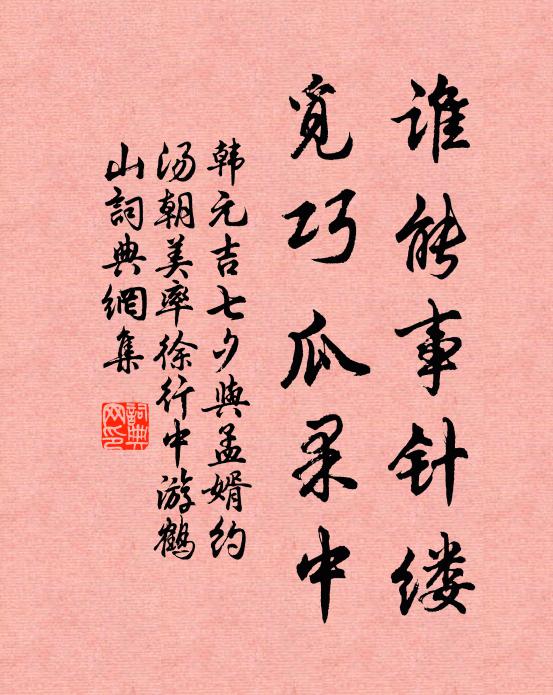 谁能事针缕
觅巧瓜果中
韩元吉七夕与孟婿约
汤朝美率徐行中游鹤
山词典网集
词典网印